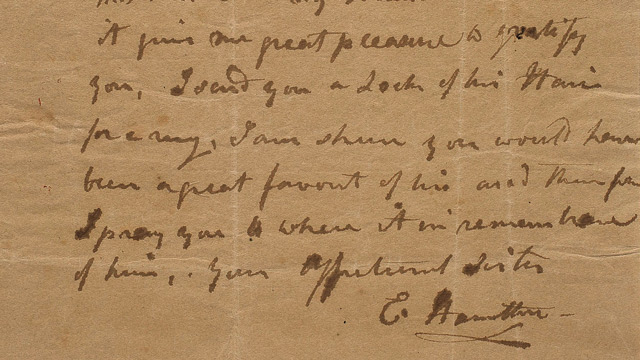 it givs me great pleasure to gratify
you, I send you a Lock of his Hair
for a ring, I am shure you would have
been a great favourit of his and therefore
I pray you to where it in remembrance
of him, . your affectionat sister
E Hamilton